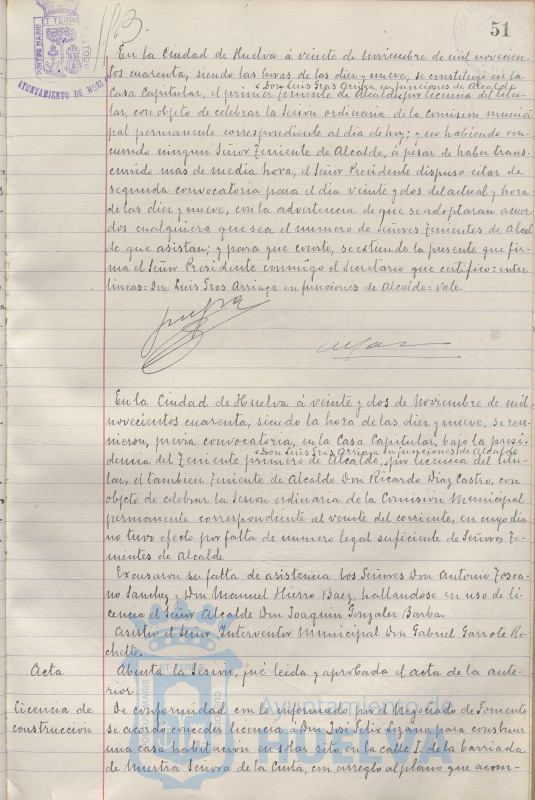 51
PORTUS MARIS ET TERRÆ CUSTODIA
AYUNTAMIENTO DE HUEL
En la Ciudad de Huelva á veinte de Noviembre de mil novecien-
tos cuarenta, siendo las horas de las diez y nueve, se constituyó en la
= Don Luis Gras Arriaga en funciones de Alcalde
Casa Capitular, el primer Teniente de Alcalde por licencia del titu-
lar, con objeto de celebrar la Sesión ordinaria de la Comisión munici
pal permanente correspondiente al día de hoy; y no habiendo con-
currido ningun Señor Teniente de Alcalde, á pesar de haber trans-
currido mas de media hora, el Señor Presidente dispuso citar de
segunda convocatoria para el día veinte y dos del actual y hora
de las diez y nueve, con la advertencia de que se adoptaran acuer
dos cualquiera que sea el numero de Señores Tenientes de Alcal
de que asistan; y para que conste, se extiende la presente que fir-
ma el Señor Presidente conmigo el Secretario que certifico = entre
lineas = Don Luis Gras Arriaga en funciones de Alcalde = vale.
En la Ciudad de Huelva á veinte y dos de Noviembre de mil
novecientos cuarenta, siendo la hora de las diez y nueve, se reu-
nieron, previa convocatoria, en la Casa Capitular, bajo la presi-
= Don Luis Gras Arriaga en funciones de Alcalde
dencia del Teniente primero de Alcalde, por licencia del titu-
lar, el tambien Teniente de Alcalde Don Ricardo Diaz Castro, con
objeto de celebrar la Sesion ordinaria de la Comisión Municipal
permanente correspondiente al veinte del corriente, en cuyo dia
no tuvo efecto por falta de numero legal suficiente de Señores Te-
nientes de Alcalde
Excusaron su falta de asistencia los Señores Don Antonio Tosca-
no Sanchez y Don Manuel Hierro Baez, hallandose en uso de li-
cencia el Señor Alcalde Don Joaquin Gonzalez Barba.
Asistió el Señor Interventor Municipal Don Gabriel Garrote Ro-
chette.
Acta
Abierta la Sesión, fué leida y aprobada el acta de la ante-
rior.
Licencia de
construcción
De conformidad con lo informado por el Negociado de Fomento
se acordó conceder licencia a Don José Feliz Lozano, para construir
una casa habitacion en solar sito en la calle I. de la barriada
de Nuestra Señora de la Cinta, con arreglo al plano que acom-
Ayuntamiento de
HUELVA